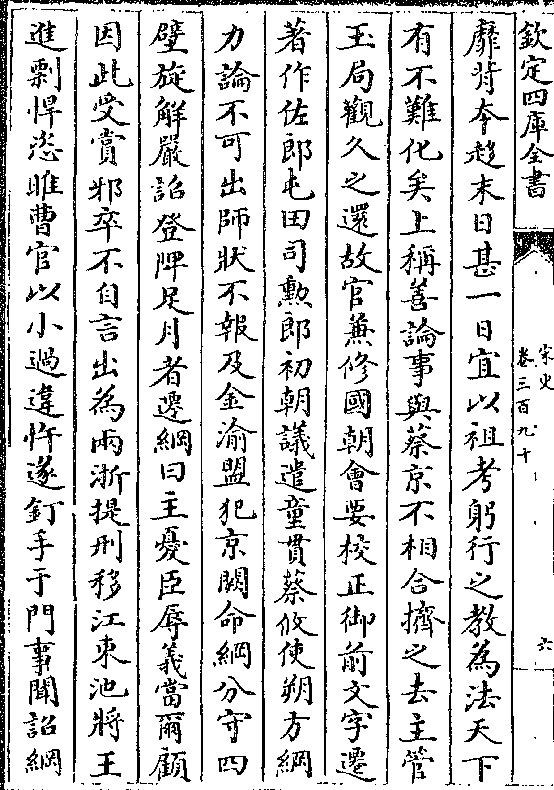 欽定四庫全書
宋史
卷三百九十
六
靡背本趍末日甚一日宜以祖考躬行之教為法天下
有不難化矣上稱善論事與蔡京不相合擠之去主管
玉局觀久之還故官兼修國朝會要校正御前文字遷
著作佐郎屯田司勲郎初朝議遣童貫蔡攸使朔方綱
力論不可出師狀不報及金渝盟犯京闕命綱分守四
壁旋解嚴詔登陴足月者遷綱曰主憂臣辱義當爾顧
因此受賞邪卒不自言出為兩浙提刑移江東池將王
進剽悍恣睢曹官以小過違忤遂釘手于門事聞詔綱